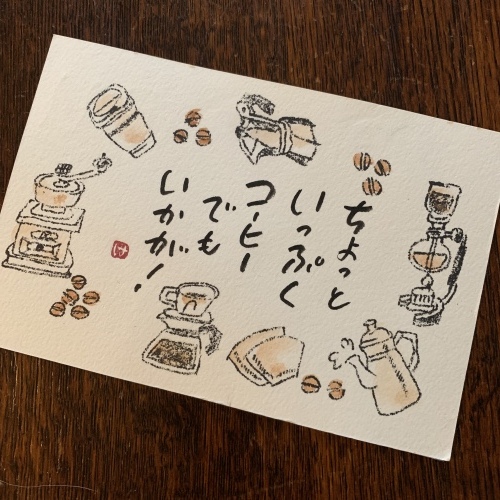 ちょっと
いっぷく
コーヒー
でも
いかが!
け